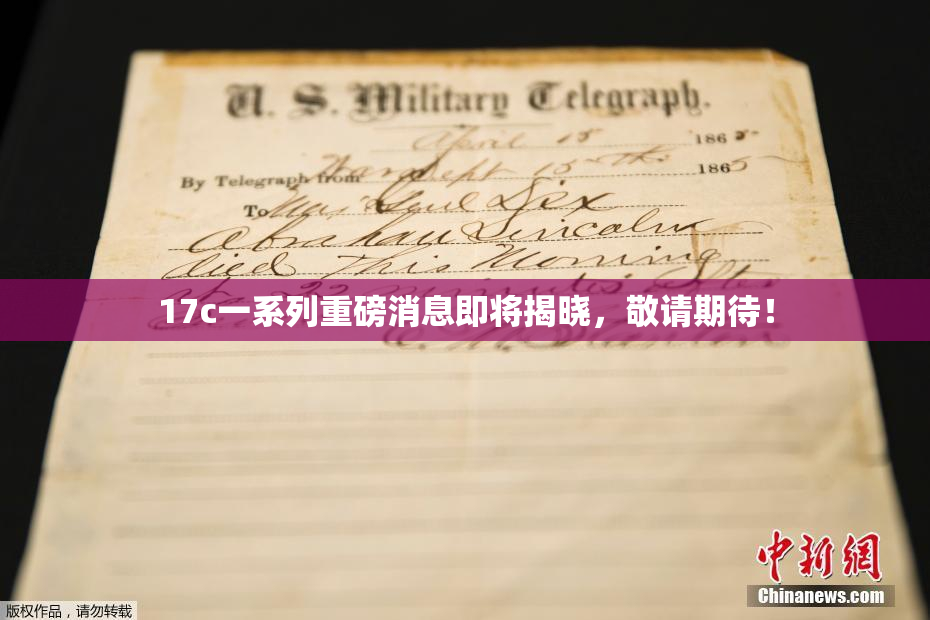 U. S. Military Telegraph.
April 15 1865
By Telegraph from War Dept 15th 1865
To Maj Genl Dix
Abraham Lincoln
died This Morning
at 22 minutes after
17c一系列重磅消息即将揭晓，敬请期待！
E. M. Stanton
中新网
Chinanews.com
版权作品，请勿转载